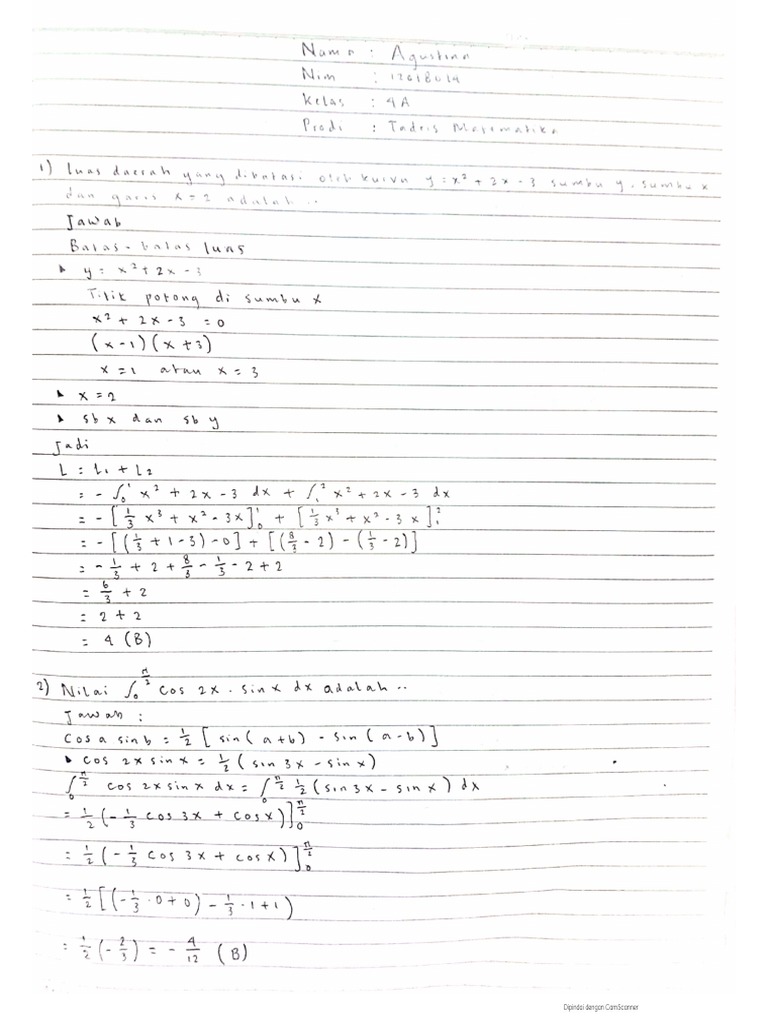 Nama : Agustina
Nim :
Kelas : 4A
Prodi : Tadris Matematika
1) Luas daerah yang dibatasi oleh kurva y = x² + 2x - 3 sumbu y, sumbu x
dan garis x = 2 adalah ..
Jawab
Batas - batas luas
▸ y = x² + 2x - 3
Titik potong di sumbu x
x² + 2x - 3 = 0
(x - 1) (x + 3)
x = 1 atau x = 3
▸ x = 2
▸ sb x dan sb y
Jadi
L = L₁ + L₂
= - ∫₀¹ x² + 2x - 3 dx + ∫₁² x² + 2x - 3 dx
= - [1/3 x³ + x² - 3x]₀¹ + [1/3 x³ + x² - 3x]₁²
= - [(1/3 + 1 - 3) - 0] + [(8/3 - 2) - (1/3 - 2)]
= - 1/3 + 2 + 8/3 - 1/3 - 2 + 2
= 6/3 + 2
= 2 + 2
= 4 (B)
2) Nilai ∫₀^(π/2) cos 2x . sin x dx adalah ..
Jawab :
Cos a sin b = 1/2 [sin (a+b) - sin (a-b)]
▸ cos 2x sin x = 1/2 (sin 3x - sin x)
∫₀^(π/2) cos 2x sin x dx = ∫₀^(π/2) 1/2 (sin 3x - sin x) dx
= 1/2 (- 1/3 cos 3x + cos x)]₀^(π/2)
= 1/2 (- 1/3 cos 3x + cos x)]₀^(π/2)
= 1/2 [(- 1/3 . 0 + 0) - 1/3 . 1 + 1)
= 1/2 (- 2/3) = - 4/12 (B)
Dipindai dengan CamScanner